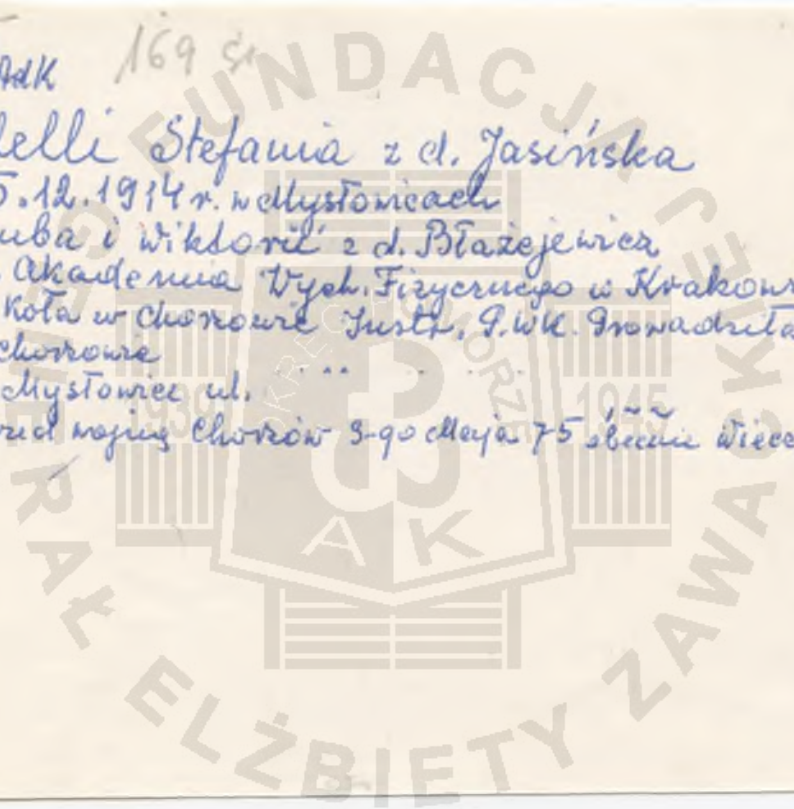 169 Śl
AdK
elli Stefania z d. Jasińska
5.12.1914 r. w Mysłowicach
uba i Wiktorii z d. Błażejewicz
Akademia Wych. Fizycznego w Krakow
Koła w Chorzowie Instr. P.WK. Prowadziła
Chorzowie
Mysłowice ul.
rzed wojną Chorzów 3-go Maja 75 obecnie
FUNDACJA
GENERAŁ ELŻBIETY ZAWACKIEJ
POMORZE
1939
1945
AK